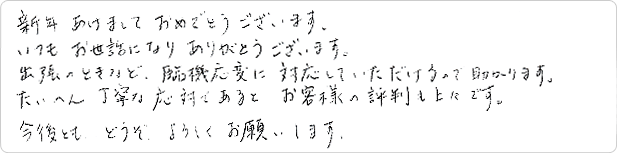 新年 あけまして おめでとうございます。
いつも お世話になり ありがとうございます。
出張のときなど、臨機応変に 対応していただけるので 助かります。
たいへん 丁寧な 応対であると お客様の 評判も上々です。
今後とも どうぞ よろしく お願いします。